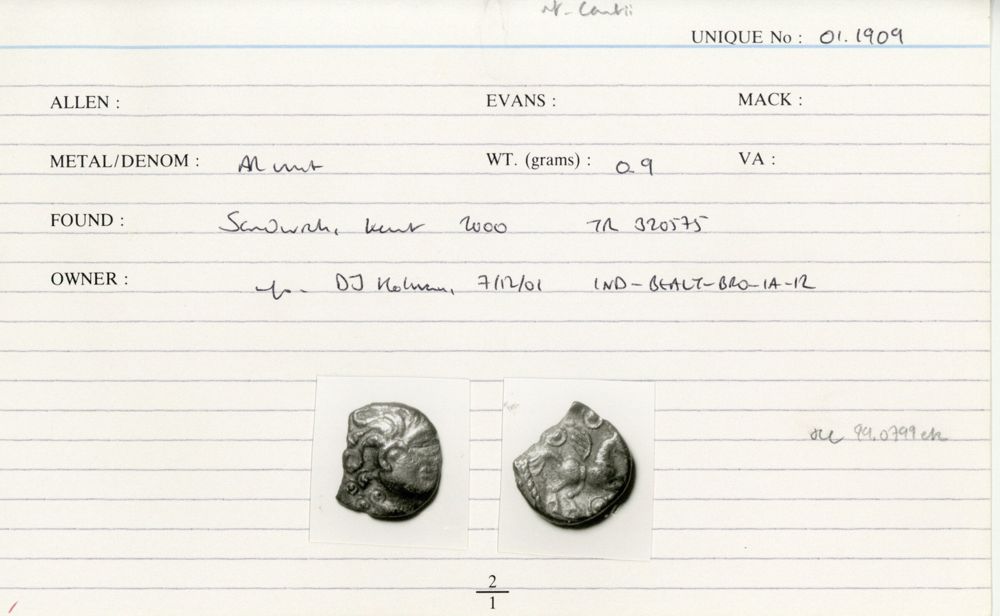 UNIQUE No : 01.1909
ALLEN : EVANS : MACK :
METAL/DENOM : AR unit WT. (grams) : 0.9 VA :
FOUND : Sandwich, Kent 2000 TR 320575
OWNER : DJ Holman, 7/12/01 IND-BEALT-BRO-IA-12
see 99.0799 etc
2
1